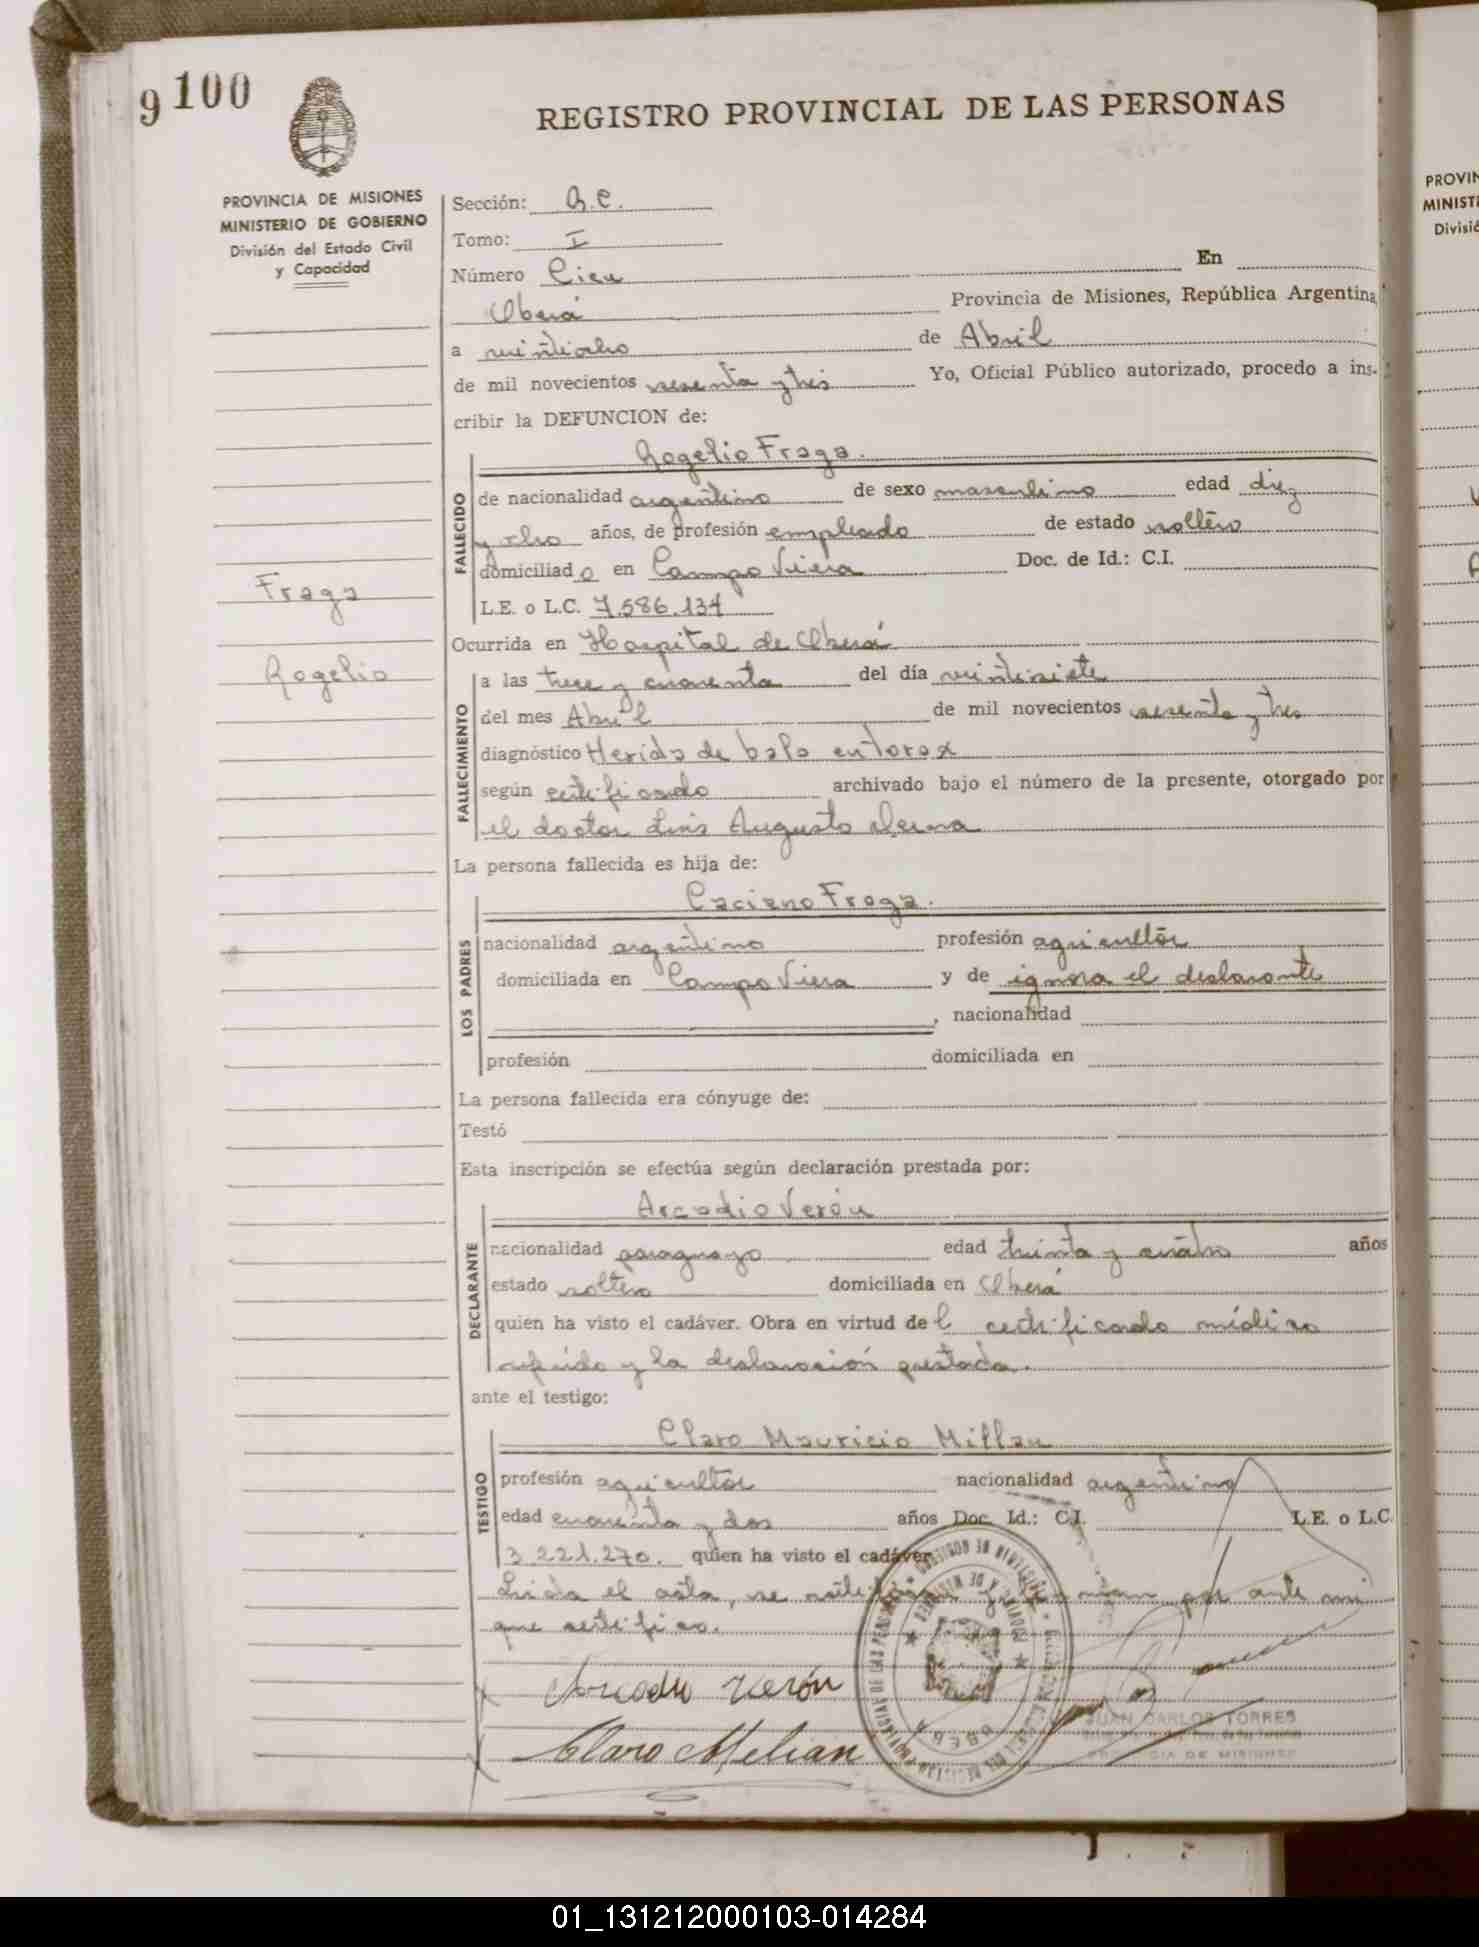 9 100
REGISTRO PROVINCIAL DE LAS PERSONAS
PROVINCIA DE MISIONES
MINISTERIO DE GOBIERNO
División del Estado Civil
y Capacidad
Sección:
Tomo: I
Número Cien En
Oberá Provincia de Misiones, República Argentina,
a veintiocho de Abril
de mil novecientos sesenta y tres Yo, Oficial Público autorizado, procedo a ins-
cribir la DEFUNCION de:
Rogelio Fraga.
FALLECIDO
de nacionalidad argentino de sexo masculino edad diez
y ocho años, de profesión empleado de estado soltero
domiciliado en Campo Viera Doc. de Id.: C.I.
L.E. o L.C. 7.586.134
Fraga
Rogelio
Ocurrida en Hospital de Oberá
FALLECIMIENTO
a las trece y cuarenta del día veintisiete
del mes Abril de mil novecientos sesenta y tres
diagnóstico Herida de bala en torax
según certificado archivado bajo el número de la presente, otorgado por
el doctor Luis Augusto
La persona fallecida es hija de:
Caciano Fraga.
LOS PADRES
nacionalidad argentino profesión agricultor
domiciliada en Campo Viera y de ignora el declarante
, nacionalidad
profesión domiciliada en
La persona fallecida era cónyuge de:
Testó
Esta inscripción se efectúa según declaración prestada por:
Arcadio Verón
DECLARANTE
nacionalidad paraguayo edad treinta y cuatro años
estado soltero domiciliada en Oberá
quien ha visto el cadáver. Obra en virtud del certificado médico
referido y la declaración prestada.
ante el testigo:
Claro Mauricio Millan
TESTIGO
profesión agricultor nacionalidad argentino
edad cuarenta y dos años Doc. Id.: C.I. L.E. o L.C.
3.221.270. quien ha visto el cadáver
Leida el acta, se firman por ante mi
que certifico.
Arcadio Verón
Claro Melian
JUAN CARLOS TORRES
PROVINCIA DE MISIONES
OBERA
PROVIN
MINISTE
Divisió
01_131212000103-014284